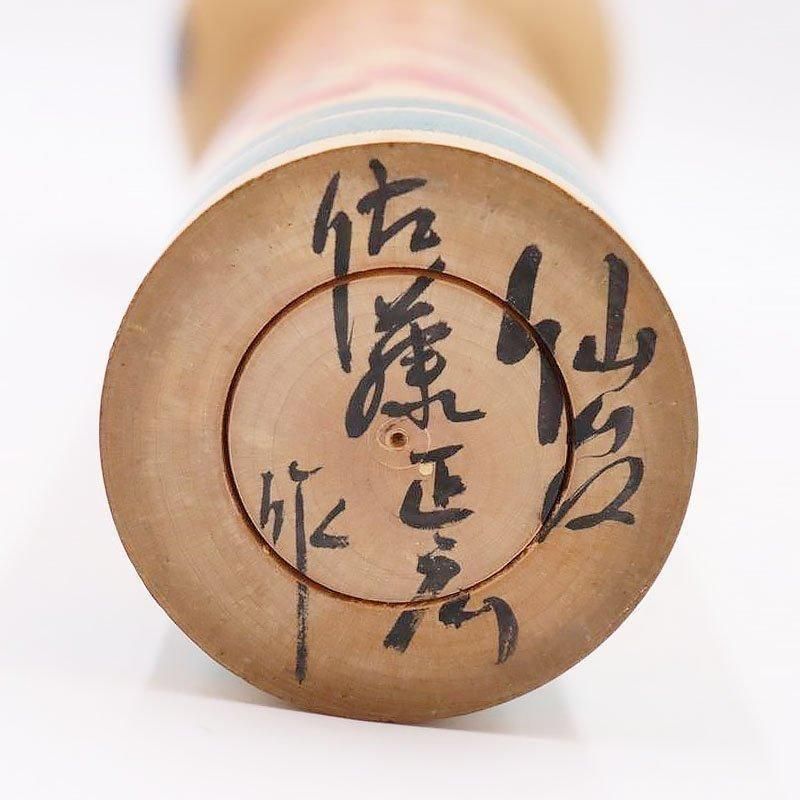 仙台
佐藤正廣
作